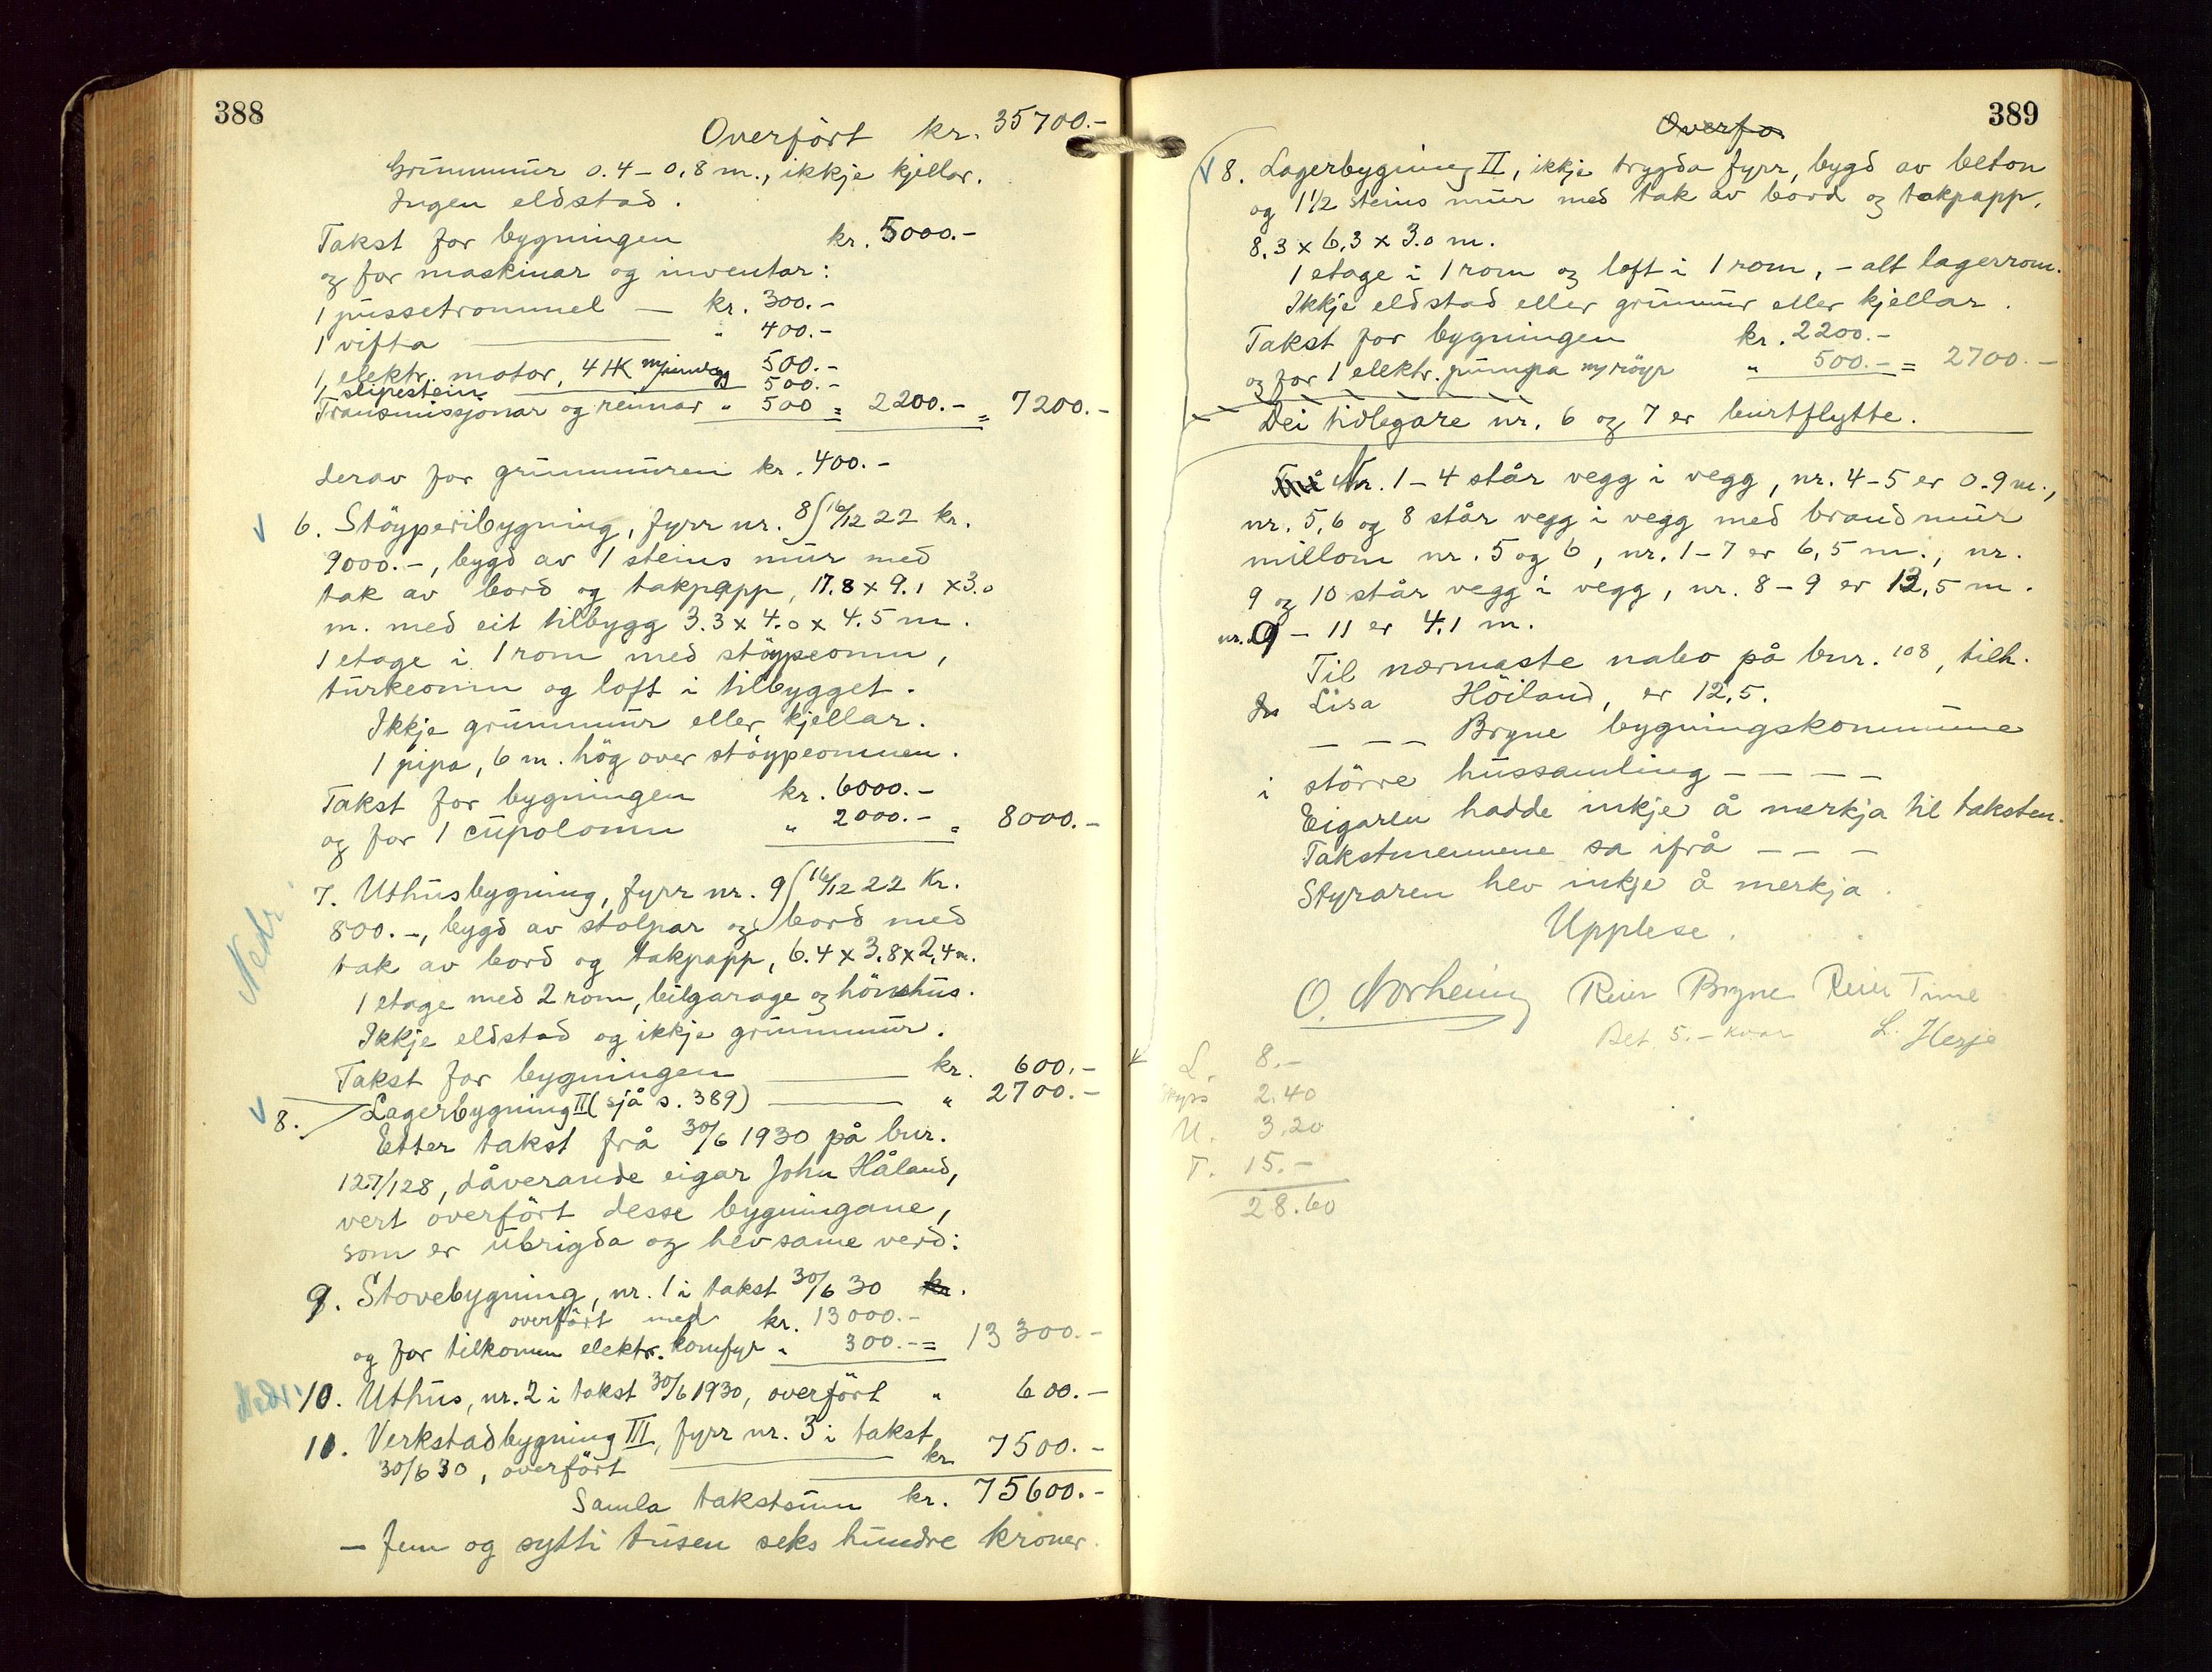 388
Overfört kr. 35700.-
Grunnmur 0.4 - 0,8 m., ikkje kjellar.
Ingen eldstad.
Takst for bygningen kr. 5000.-
og for maskinar og inventar:
1 pussetrommel — kr. 300.-
1 vifta — " 400.-
1 elektr. motor, 4 HK 500.-
1 slipestein — 500.-
Transmissjonar og reimar " 500 = 2200.- = 7200.-
derav for grunnmuren kr. 400.-
6. Stöyperibygning, fyrr nr. 8/ 16/12 22 kr.
9000.-, bygd av 1 steins mur med
tak av bord og takpapp, 17.8 x 9.1 x 3.0
m. med eit tilbygg 3.3 x 4.0 x 4.5 m.
1 etage i 1 rom med stöypeomn,
turkeomn og loft i tilbygget.
Ikkje grunnmur eller kjellar.
1 pipa, 6 m. hög over stöypeomnen.
Takst for bygningen kr. 6000.-
og for 1 cupolomn " 2000.- = 8000.-
7. Uthusbygning, fyrr nr. 9/ 16/12 22 Kr.
800.-, bygd av stolpar og bord med
tak av bord og takpapp, 6.4 x 3.8 x 2,4 m.
1 etage med 2 rom, bilgarage og hönsehus.
Ikkje eldstad og ikkje grunnmur.
Takst for bygningen — kr. 600.-
8. Lagerbygning II (sjå s. 389) — " 2700.-
Etter takst frå 30/6 1930 på bnr.
127/128, dåverande eigar John Håland,
vert overfört desse bygningane,
som er ubrigda og hev same verd:
9. Stovebygning, nr. 1 i takst 30/6 30 kr.
overfört med kr. 13000.-
og for tilkomen elektr. komfyr " 300.- = 13300.-
10. Uthus, nr. 2 i takst 30/6 1930, overfört " 600.-
11. Verkstadbygning III, fyrr nr. 3 i takst
30/6 30, overfört — kr. 7500.-
Samla takstsum kr. 75600.-
— fem og sytti tusen seks hundre kroner.
389
Overfö
8. Lagerbygning II, ikkje trygda fyrr, bygd av beton
og 1 1/2 steins mur med tak av bord og takpapp,
8,3 x 6,3 x 3.0 m.
1 etage i 1 rom og loft i 1 rom, - alt lagerrom.
Ikkje eldstad eller grunnmur eller kjellar.
Takst for bygningen kr. 2200.-
og for 1 elektr. pumpa m/röyr " 500.- = 2700.-
Dei tidlegare nr. 6 og 7 er burtflytte.
Nr. 1 - 4 står vegg i vegg, nr. 4-5 er 0.9 m.,
nr. 5,6 og 8 står vegg i vegg med brandmur
millom nr. 5 og 6, nr. 1-7 er 6,5 m., nr.
9 og 10 står vegg i vegg, nr. 8-9 er 12,5 m.
nr. 9 - 11 er 4,1 m.
Til nærmaste nabo på bnr. 108, tilh.
Lisa Höiland, er 12,5.
— — — Bryne bygningskommune
i större hussamling — — — —
Eigaren hadde inkje å merkja til taksten.
Takstmennene sa ifrå — — —
Styraren hev inkje å merkja.
Upplese.
O. Norheim Reier Bryne Reier Time
Bet. 5.- kvar L. Herje
L. 8.-
Skyss 2.40
U. 3.20
T. 15.-
28.60